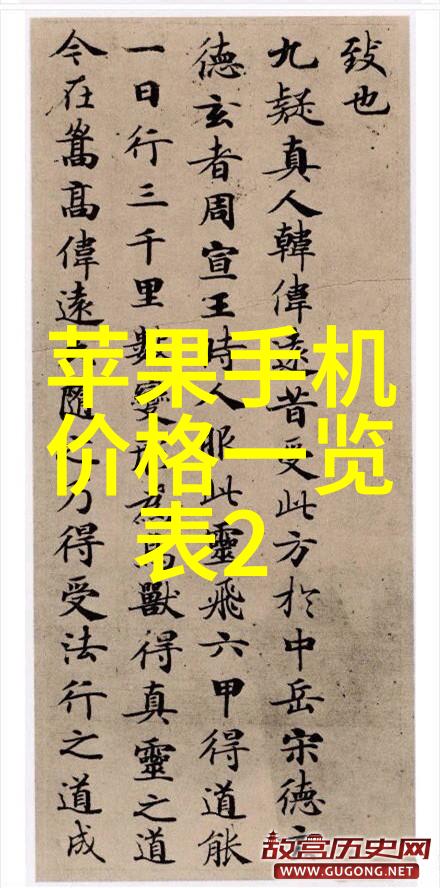 致也
九疑真人韓偉遠昔受此方於中岳宋德玄
德玄者周宣王時人服此靈飛六甲得道能
一日行三千里數變形為鳥獸得真靈之道
今在嵩高偉遠隨之乃得受法行之道成
苹果手机
价格一览
表2
故宫历史网
WWW.GUGONG.NET